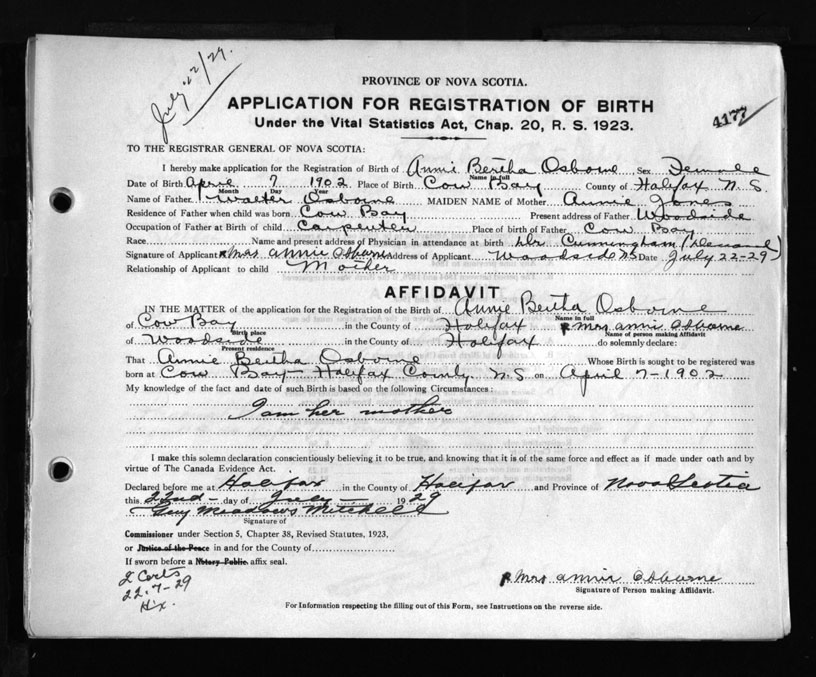 July 22/29.
PROVINCE OF NOVA SCOTIA.
APPLICATION FOR REGISTRATION OF BIRTH
4177
Under the Vital Statistics Act, Chap. 20, R. S. 1923.
TO THE REGISTRAR GENERAL OF NOVA SCOTIA:
I hereby make application for the Registration of Birth of Annie Bertha Osborne Sex Female
Name in full
Date of Birth April 7 1902 Place of Birth Cow Bay County of Halifax N. S.
Month Day Year
Name of Father Walter Osborne MAIDEN NAME of Mother Annie Jones
Residence of Father when child was born Cow Bay Present address of Father Woodside
Occupation of Father at Birth of child Carpenter Place of birth of Father Cow Bay
Race Name and present address of Physician in attendance at birth Dr. Cunningham (Deceased)
Signature of Applicant Mrs Annie Osborne Address of Applicant Woodside NS Date July 22-29
Relationship of Applicant to child Mother
AFFIDAVIT
IN THE MATTER of the application for the Registration of the Birth of Annie Bertha Osborne
Name in full
of Cow Bay in the County of Halifax Mrs Annie Osborne
Birth place Name of person making Affidavit
of Woodside in the County of Halifax do solemnly declare:
Present residence
That Annie Bertha Osborne Whose Birth is sought to be registered was
born at Cow Bay - Halifax County N. S. on April 7-1902
My knowledge of the fact and date of such Birth is based on the following Circumstances:
I am her mother
I make this solemn declaration conscientiously believing it to be true, and knowing that it is of the same force and effect as if made under oath and by
virtue of The Canada Evidence Act.
Declared before me at Halifax in the County of Halifax and Province of Nova Scotia
this 22nd day of July 1929
Guy Meadows Mitchell
Signature of
Commissioner under Section 5, Chapter 38, Revised Statutes, 1923,
or Justice of the Peace in and for the County of
If sworn before a Notary Public affix seal.
2 Certs
22.7-29
Hx.
Mrs Annie Osborne
Signature of Person making Affidavit.
For Information respecting the filling out of this Form, see Instructions on the reverse side.